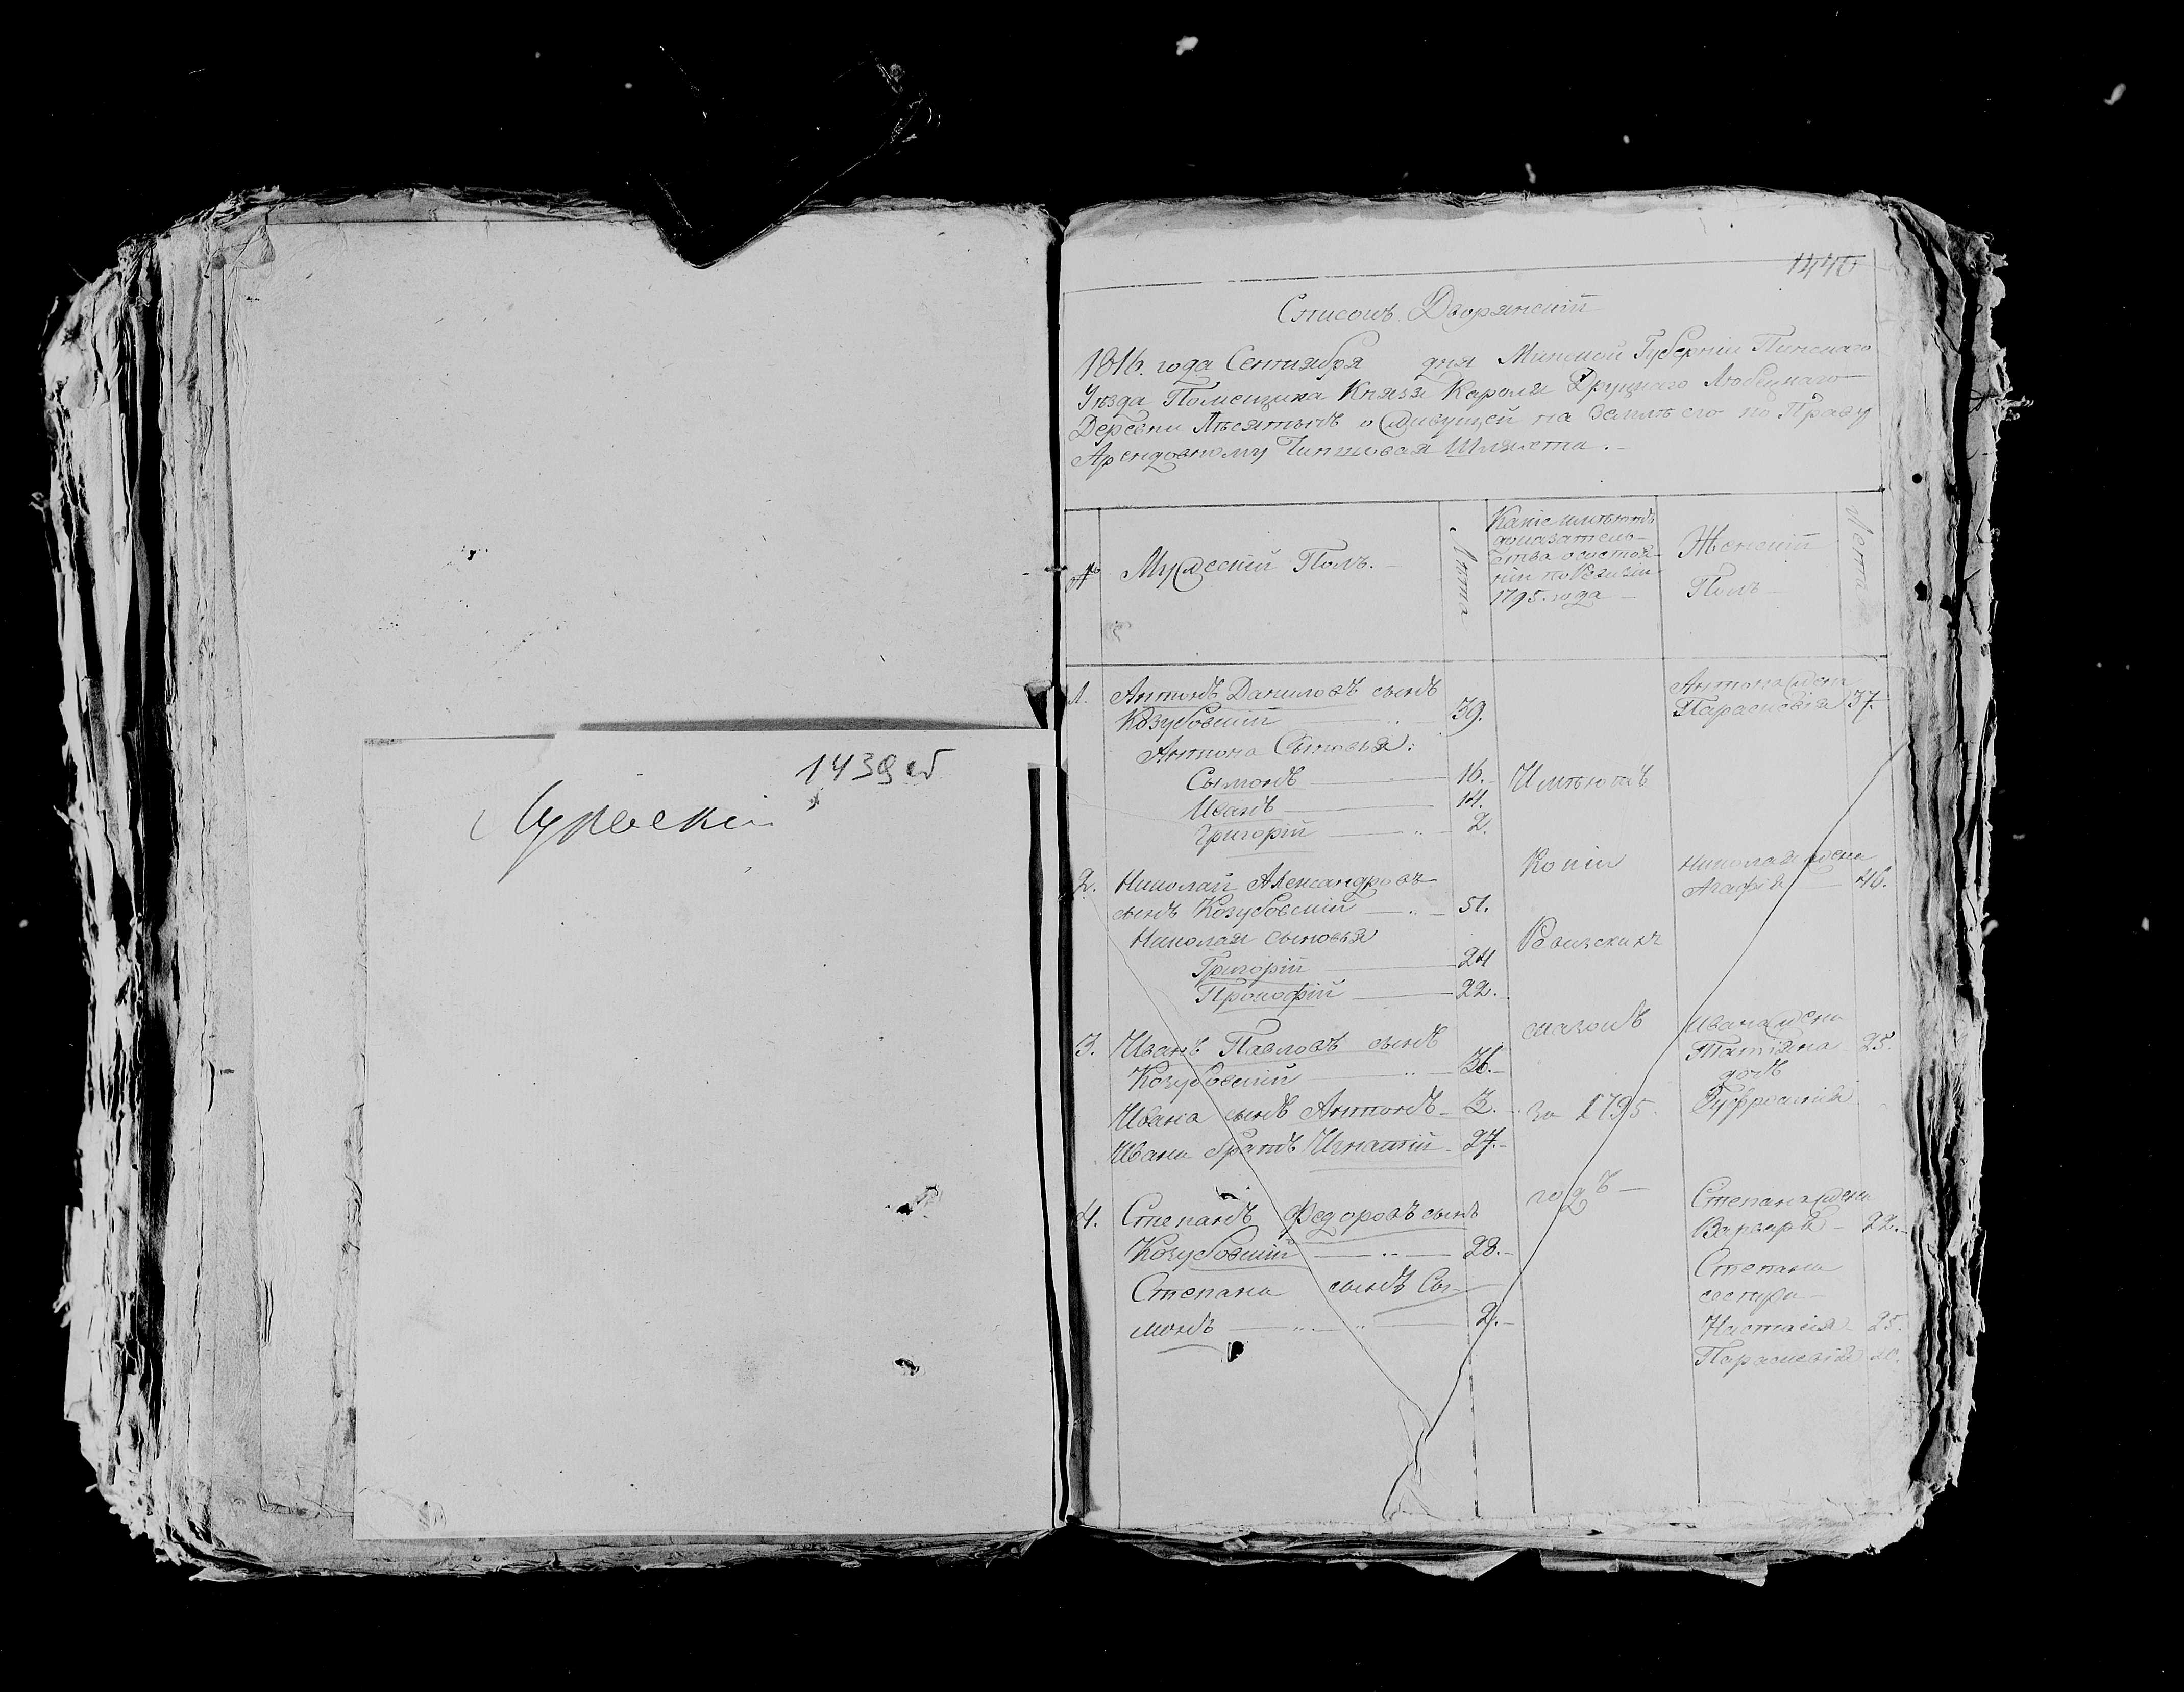 1439 об
1440
Списокъ Дворянскій
1816. года Сентября дня Минской Губерніи Пинскаго
Уезда Помещика Князя Кароля Друцкаго Любецкаго
Деревни и живущей на Земле его по Праву
Арендовному Чиншовая Шляхта.
№
Мужескій Полъ.
Лета
Какіе имеютъ
доказатель-
ства о состоя-
ніи по Ревизіи
1795. года
Женскій
Полъ
Лета
1. Антонъ Даниловъ сынъ
Козубовскій 39.
Антона Сыновья:
Сымонъ 16.
Иванъ 14.
Григорій 2.
Антона жена
Параскевія 37.
Имеютъ
Копіи
Ревизскихъ
сказокъ
за 1795.
годъ
2. Николай Александровъ
сынъ Козубовскій 51.
Николая сыновья
Григорій 24
Прокофій 22.
Николая жена
Агафія 46.
3. Иванъ Павловъ сынъ
Козубовскій 36.
Ивана сынъ Антонъ 3.
Ивана братъ Игнатій 27.
Ивана жена
Татіяна 25.
дочь
Еуфросинія
4. Степанъ Федоровъ сынъ
Козубовскій 28.
Степана сынъ Сы-
монъ 2.
Степана жена
Варвара 22.
Степана
сестры
Настасія 25.
Параскевія